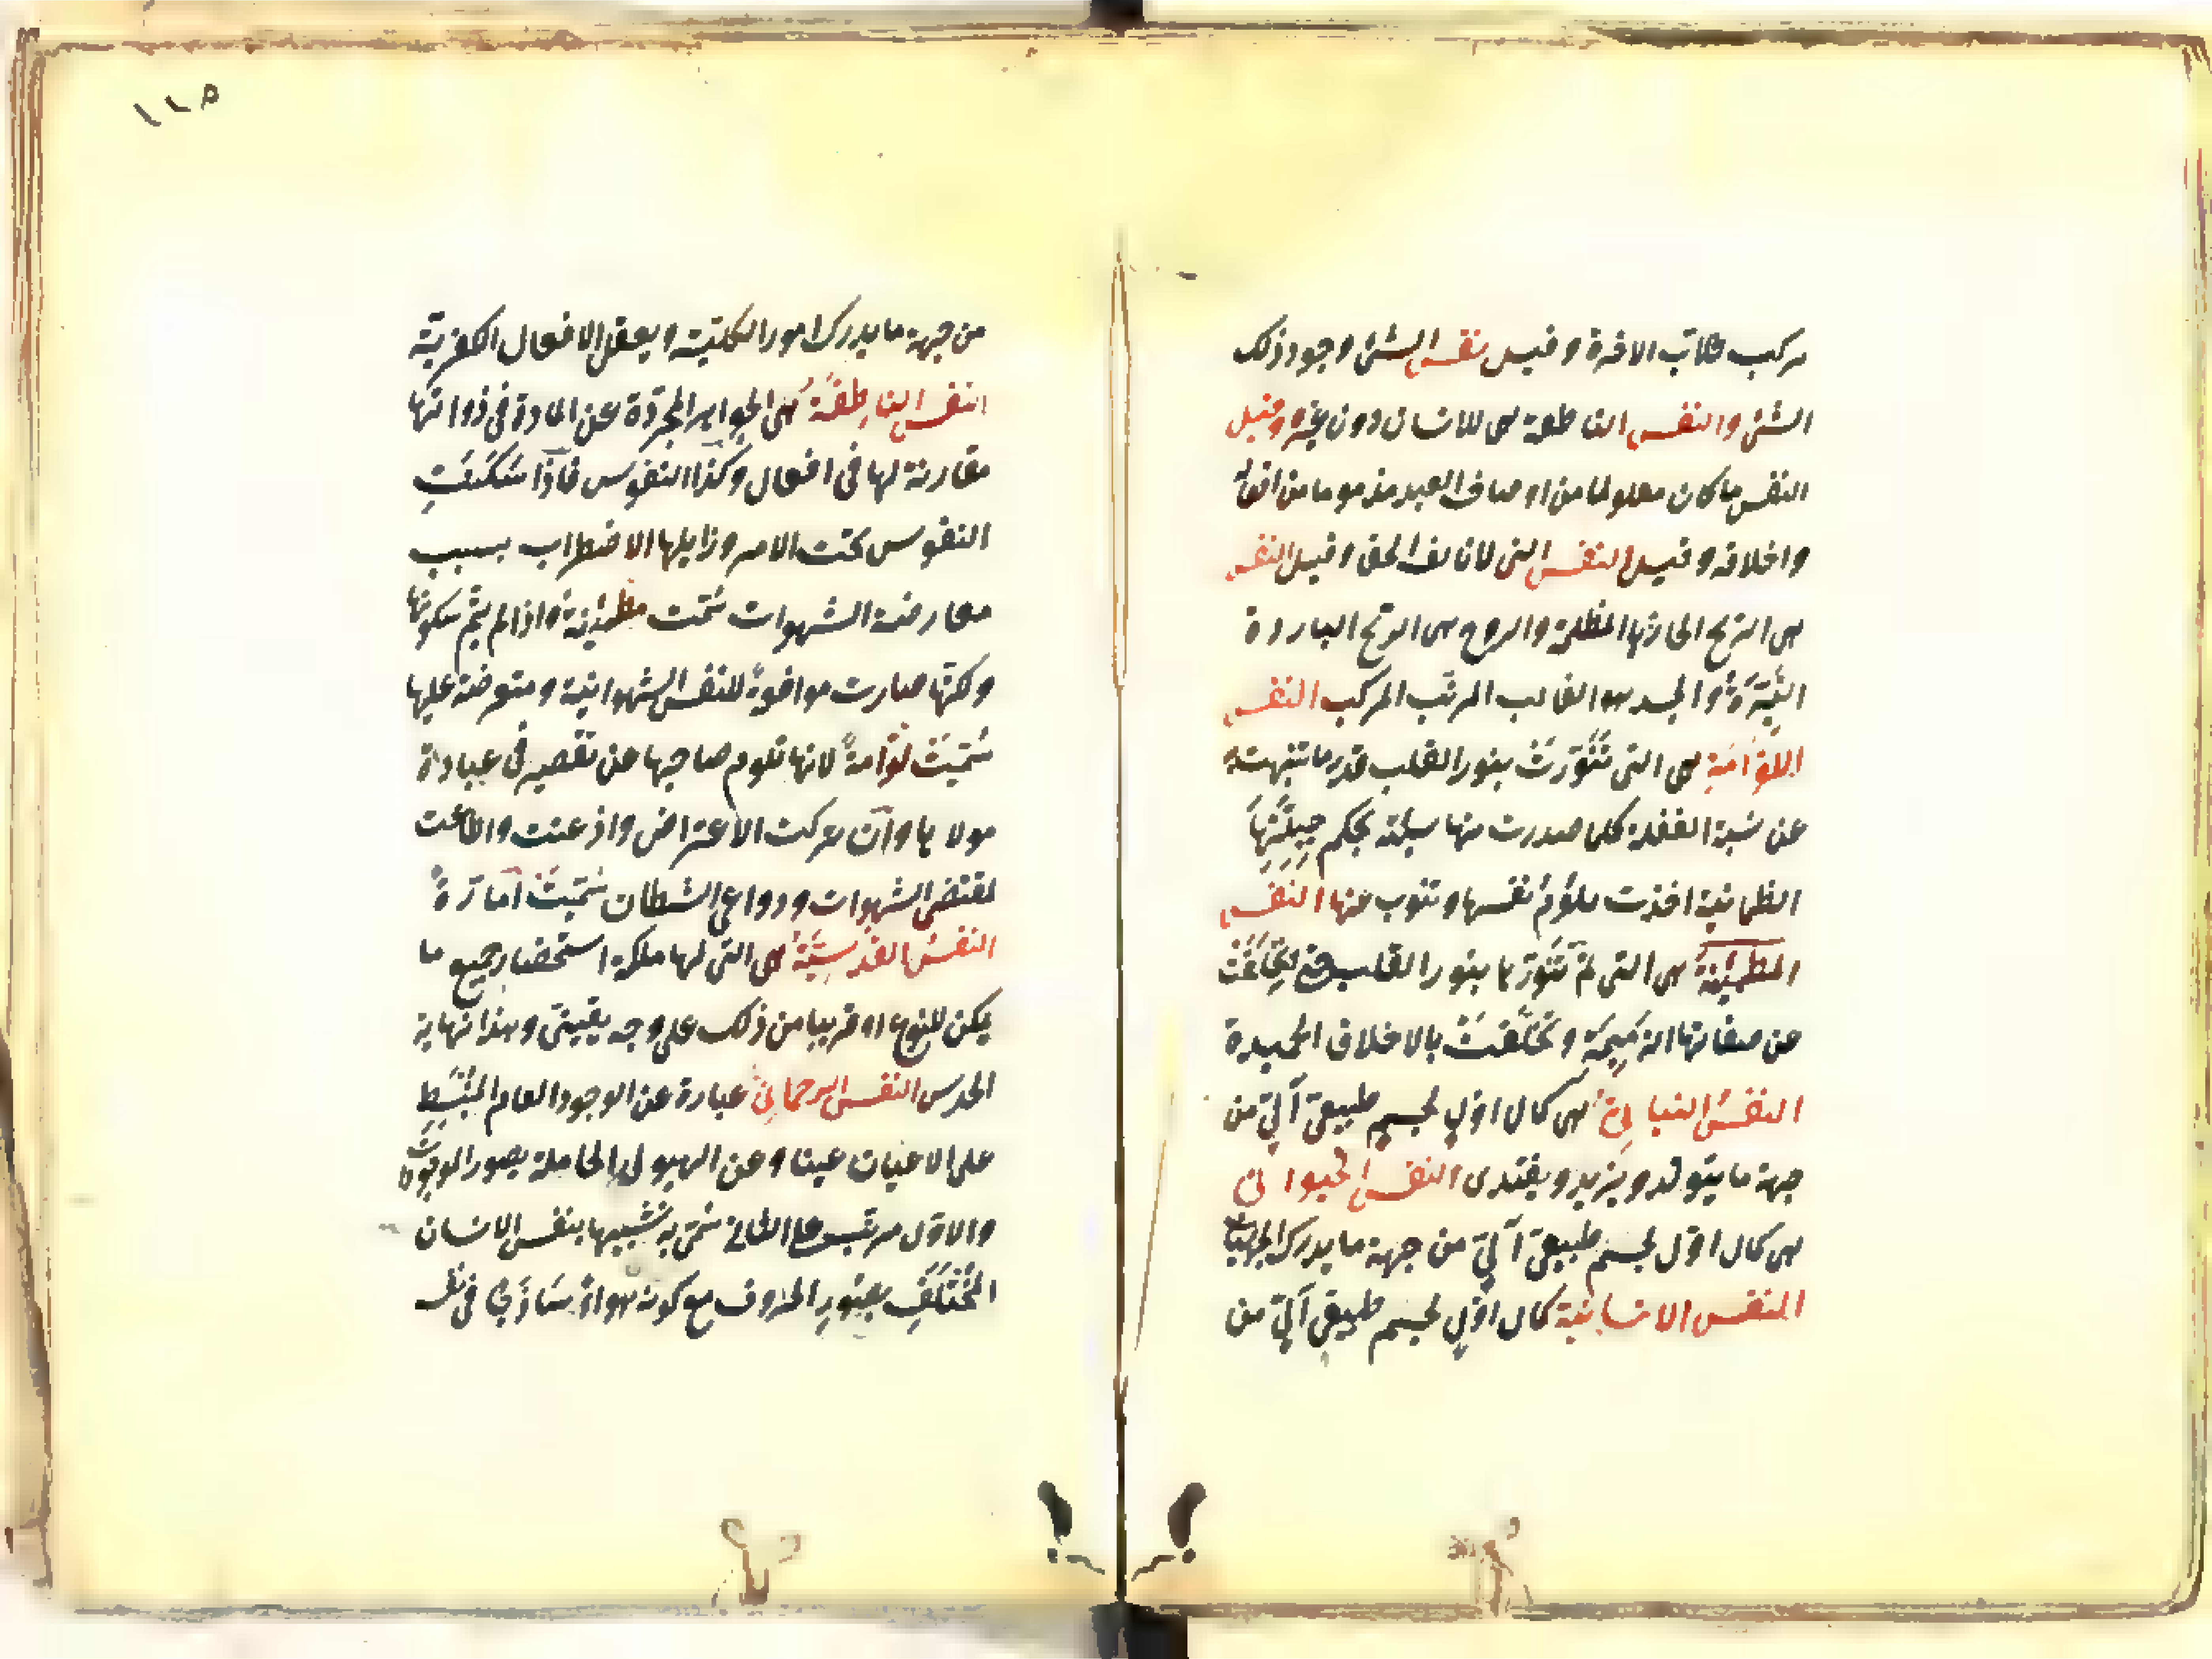 مركب طلاب الاخرة وقيل نفس الشئ وجود ذلك
الشئ والنفس الناطقة هى للانسان دون غيره وقيل
النفس ما كان معلولما من اوصاف العبد مذموما من افعاله
واخلاقه وقيل النفس التى لا تالف الحق وقيل النفس
هى الريح الحارة المظلمة والروح هى الريح الباردة
النَّيِّرَةُ والجسد هو القالب المرتب المركب النفس
اللوَّامَة هى التى تَنَوَّرَتْ بنور القلب قدر ما تنبهت به
عن سنة الغفلة كلما صدرت منها سيئة بحكم جِبِلَّتِهَا
الظلمانية اخذت تلوم نفسها وتتوب عنها النفس
المطمئنةُ هى التى تَمَّ تَنَوُّرُها بنور القلب حتى انخلعت
عن صفاتها الذميمة وتخلَّقَتْ بالاخلاق الحميدة
النفسُ النباتى هى كمال اوّلٍ لجسمٍ طبيعىّ آلىّ من
جهة ما يتولد ويزيد ويغتدى النفس الحيوانى
هى كمال اوّل لجسم طبيعىّ آلىّ من جهة ما يدرك الجزئيات
النفس الانسانية كمال اوّلٍ لجسم طبيعىّ آلىّ من
١٢٥
من جهة ما يدرك امور الكليّة ويعقل الافعال الفكريّة
النفس الناطِقَةُ هى الجواهر المجرّدة عن المادة فى ذواتها
مقارنة لها فى افعال وكذا النفوس فاذا سَكَنَتِ
النفوس تحت الامر وزايلها الاضطراب بسبب
معارضة الشهوات سُمّيت مطمئنةً واذا لم يتم سكونها
ولكنّها صارت موافقةً للنفس الشهوانية ومتعرضة عليها
سُمّيَتْ لوَّامةً لانها تلوم صاحبها عن تقصير فى عبادة
مولاها وان تركت الاعتراض واذعنت واطاعت
لمقتضى الشهوات ودواعى الشيطان سُمّيَتْ امّارةً
النفسُ القدسيَّةُ هى التى لها ملكة استحضار جميع ما
يمكن للنوع او قريبا من ذلك على وجه يقينىّ وهذا نهاية
الحدس النفس الرحمانىّ عبارة عن الوجود العام المنبَسِطِ
على الاعيان عينا وعن الهيولى الحاملة بصور الموجودات
والاول مرتب على الثانى سُمّى به تشبيها بنفس الانسان
المُخْتَلِفِ بصُوَرِ الحروف مع كونه هواءً ساذجا فى نفسه